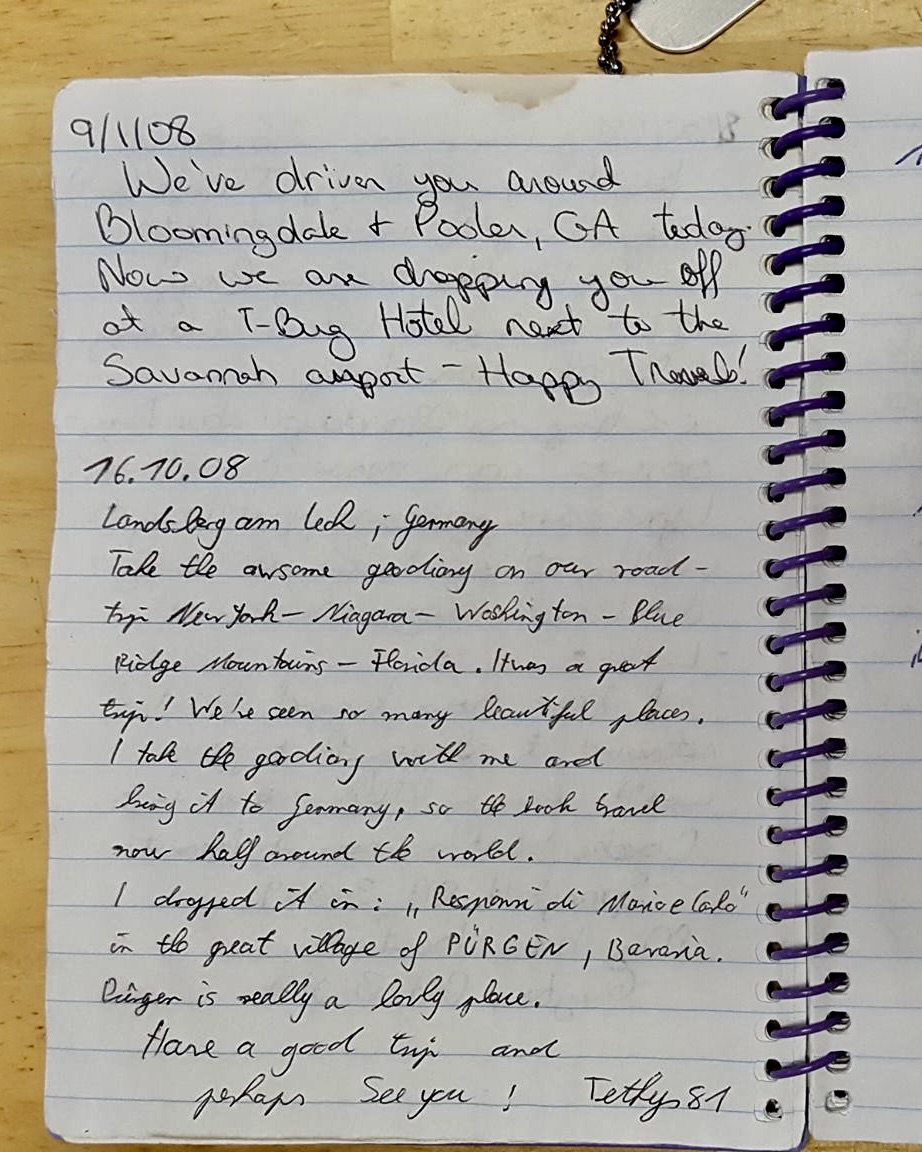 9/1/08
We've driven you around
Bloomingdale + Pooler, GA today.
Now we are dropping you off
at a T-Bug Hotel next to the
Savannah airport - Happy Travels!
16.10.08
Landsberg am Lech ; Germany
Take the awsome geodiary on our road-
trip New York - Niagara - Washington - Blue
Ridge Mountains - Florida. It was a great
trip! We've seen so many beautiful places.
I take the geodiary with me and
bring it to Germany, so the book travel
now half around the world.
I dropped it in: „Responsi di Mario e Carlo“
in the great village of PÜRGEN, Bavaria.
Pürgen is really a lovly place.
Have a good trip and
perhaps See you ! Tethys81